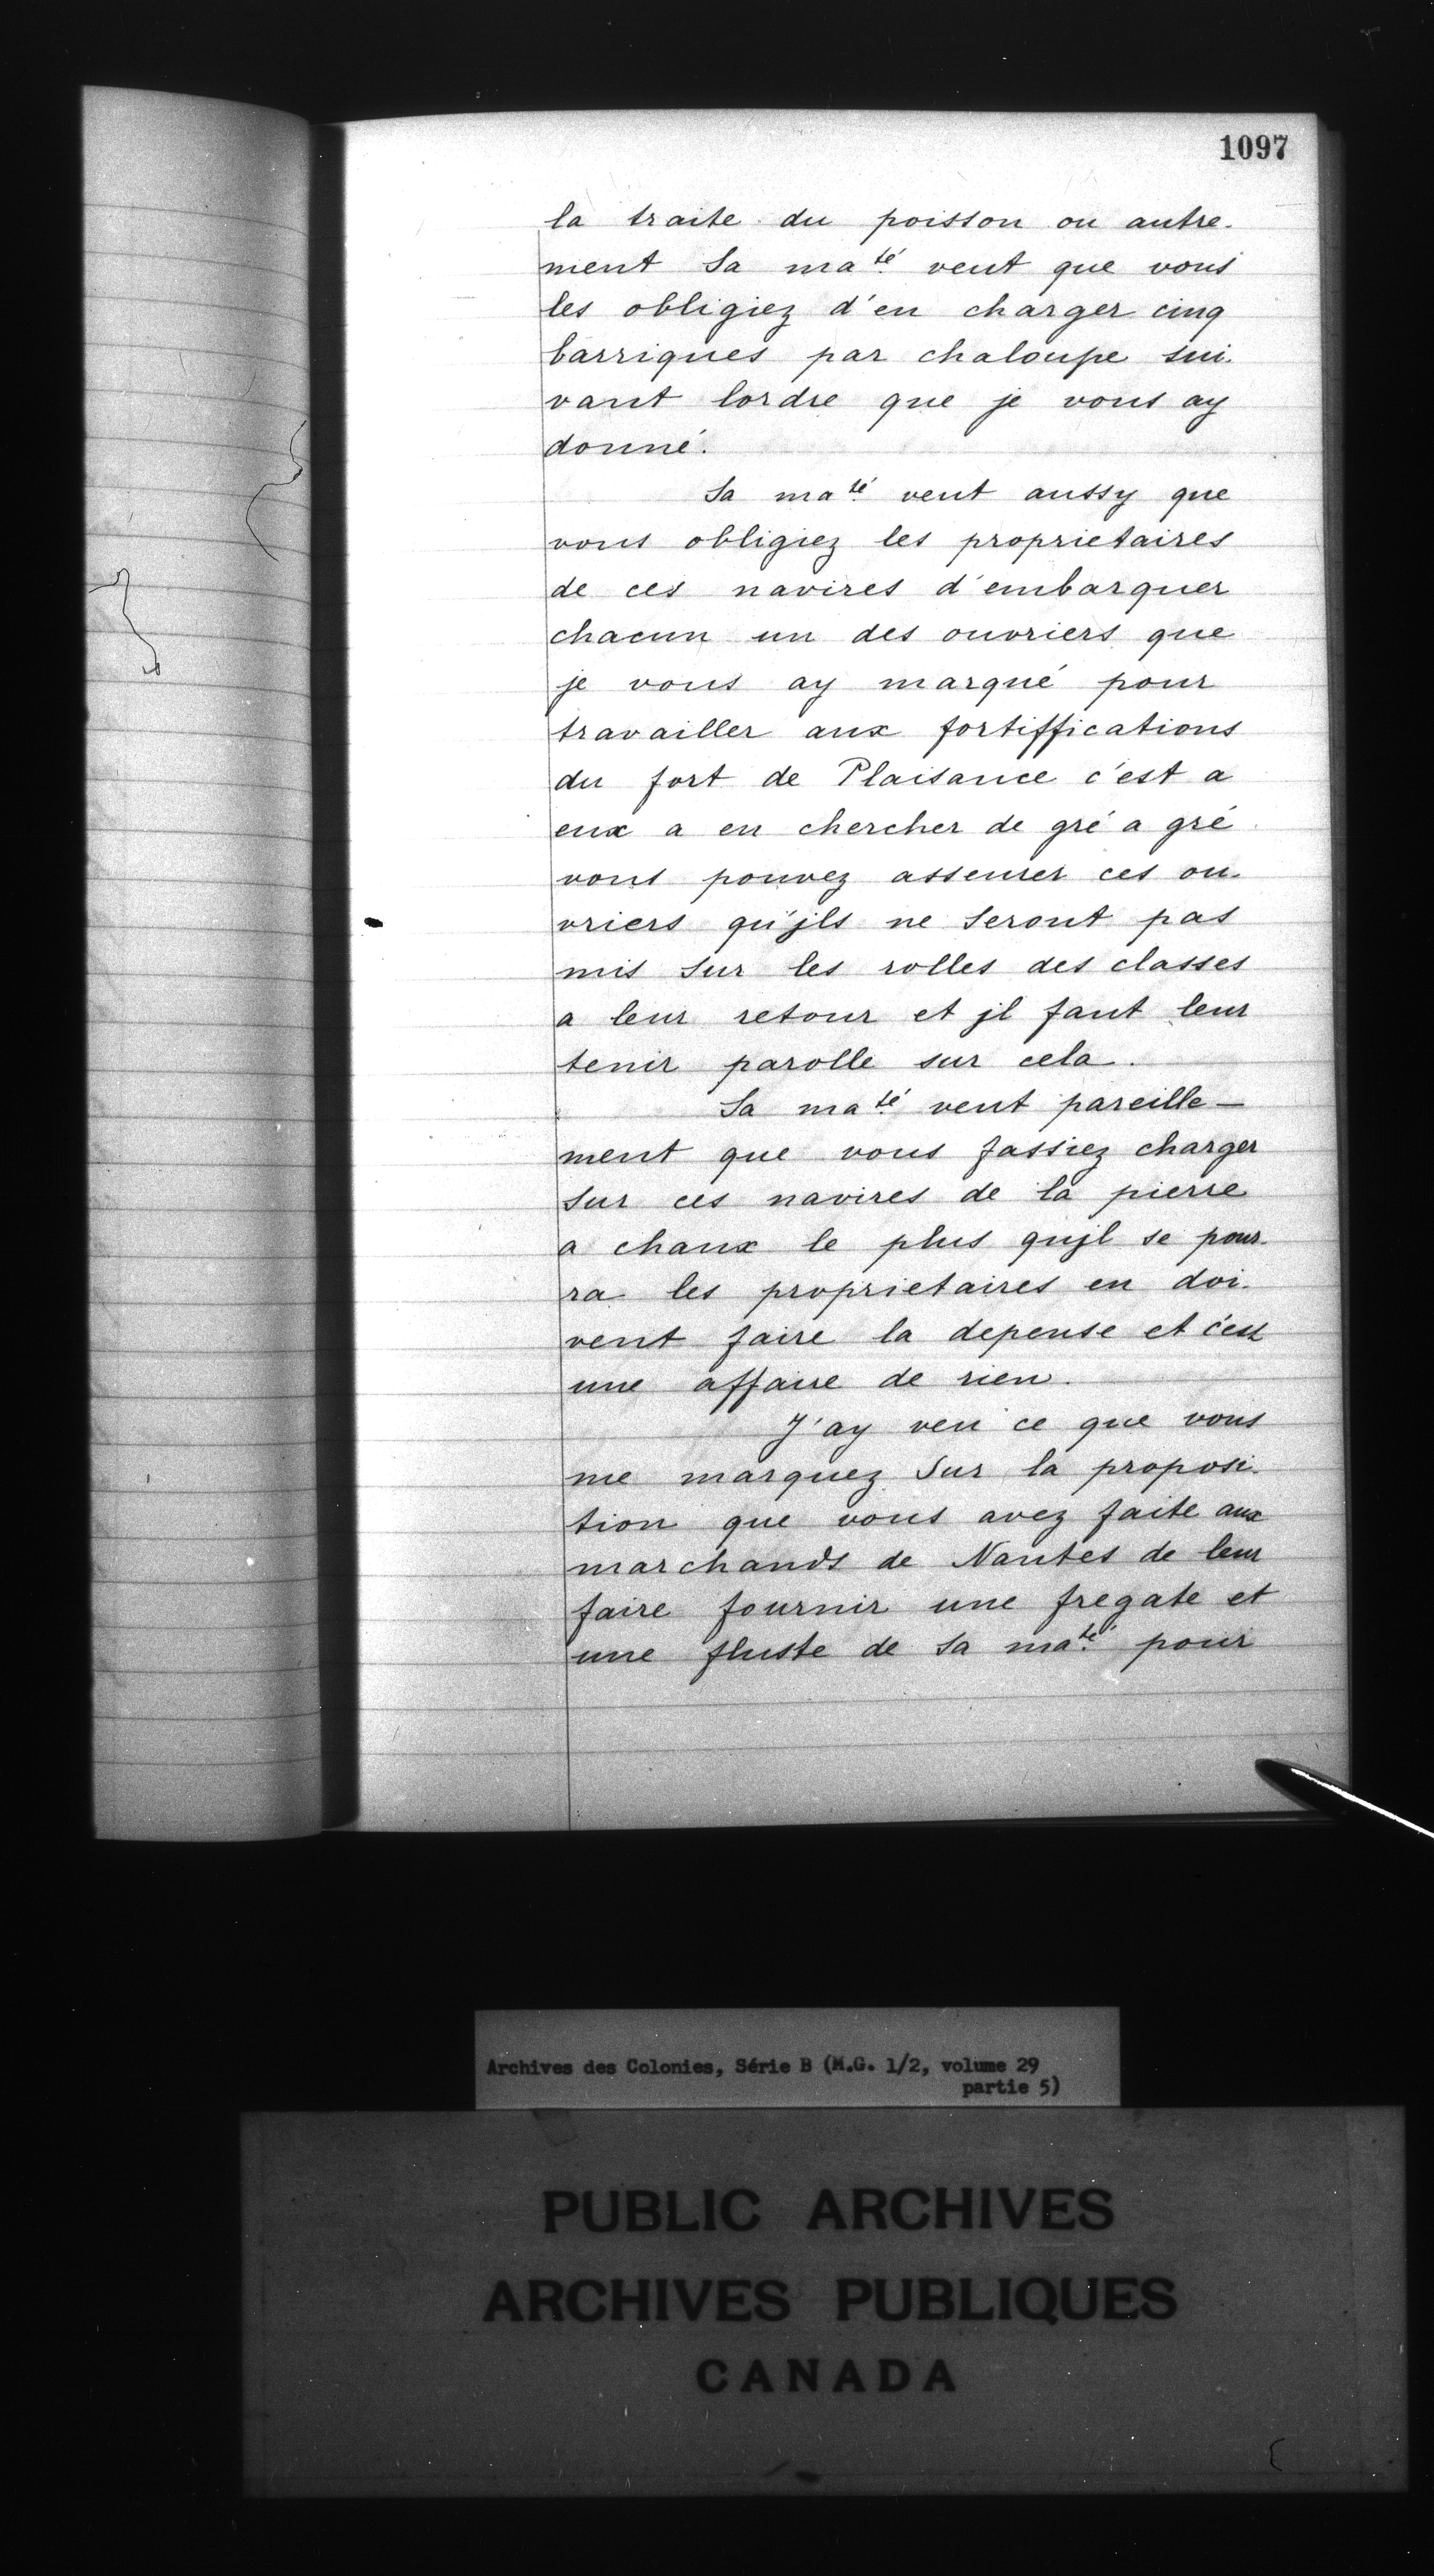 1097
la traite du poisson ou autre-
ment Sa ma.té veut que vous
les obligiez d'en charger cinq
barriques par chaloupe sui-
vant lordre que je vous ay
donné.
Sa ma.té veut aussy que
vous obligiez les proprietaires
de ces navires d'embarquer
chacun un des ouvriers que
je vous ay marqué pour
travailler aux fortiffications
du fort de Plaisance c'est a
eux a en chercher de gré a gré
vous pouvez asseurer ces ou-
vriers qu'jls ne seront pas
mis sur les rolles des classes
a leur retour et jl faut leur
tenir parolle sur cela.
Sa ma.té veut pareille-
ment que vous fassiez charger
sur ces navires de la pierre
a chaux le plus qujl se pour-
ra les proprietaires en doi-
vent faire la depense et c'est
une affaire de rien.
J'ay veu ce que vous
me marquez sur la proposi-
tion que vous avez faite aux
marchands de Nantes de leur
faire fournir une fregate et
une fluste de sa ma.té pour
Archives des Colonies, Série B (M.G. 1/2, volume 29
partie 5)
PUBLIC ARCHIVES
ARCHIVES PUBLIQUES
CANADA